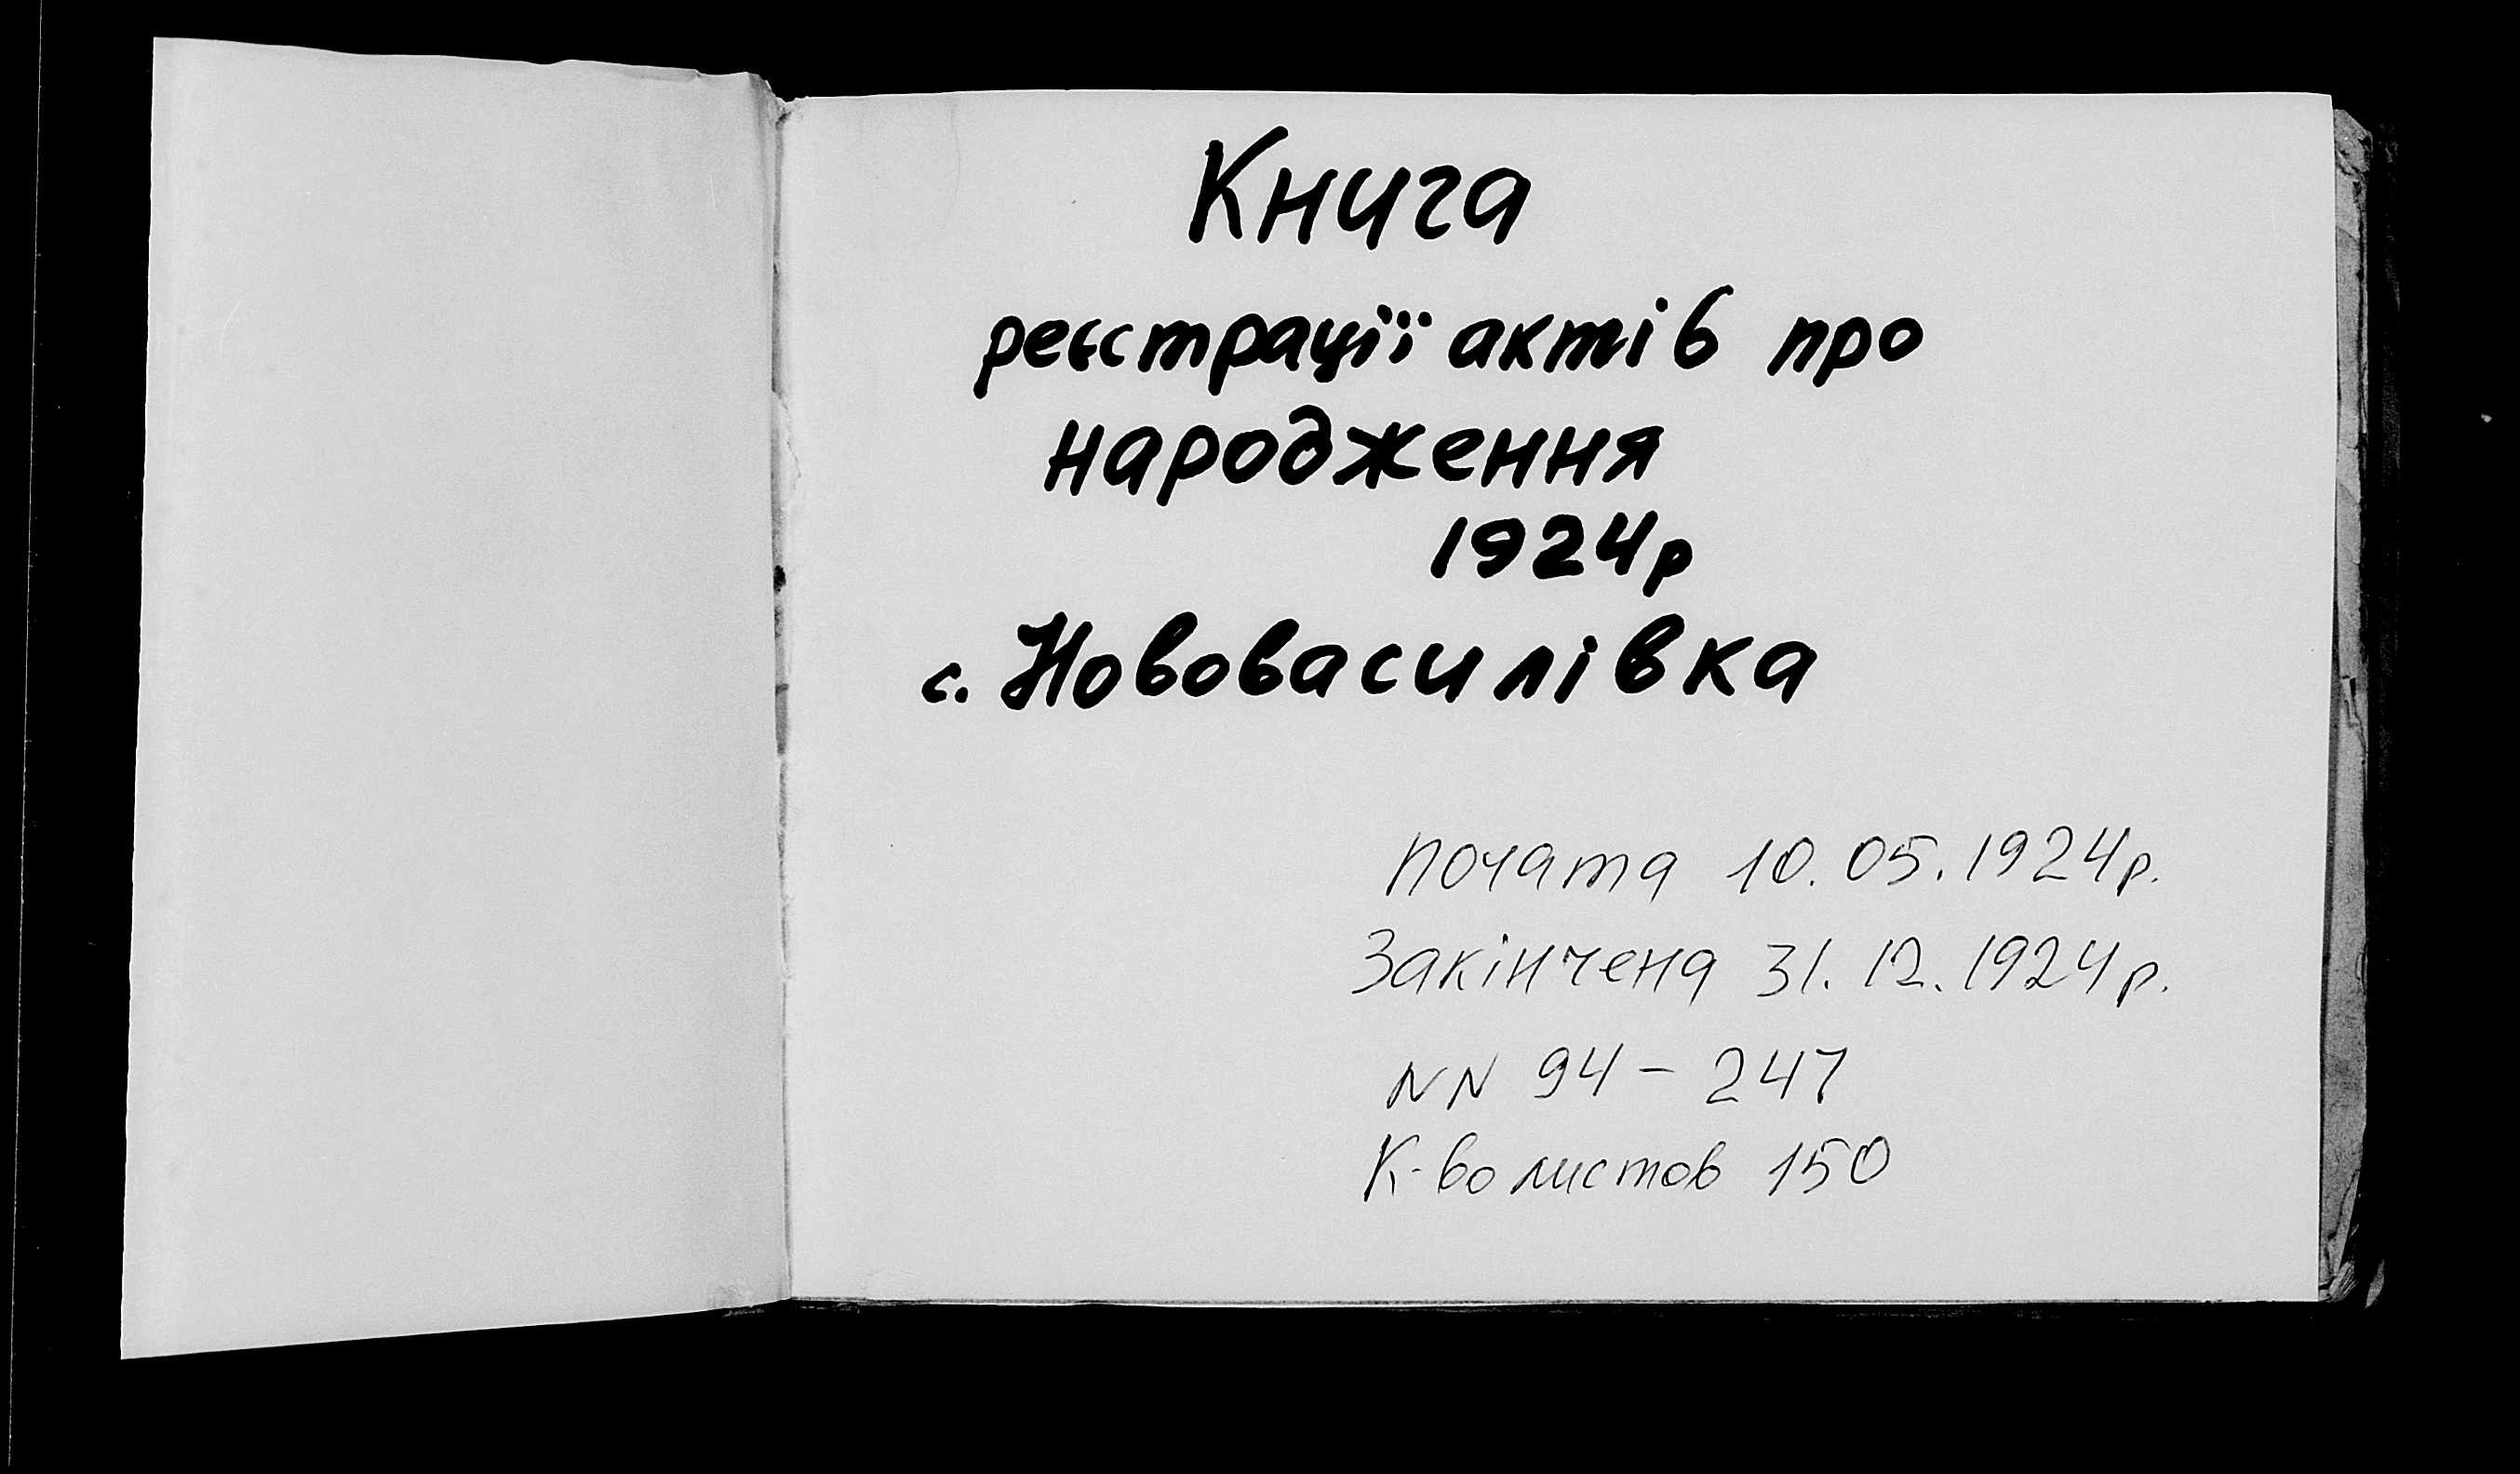 Книга
реєстрації актів про
народження
1924р
с. Нововасилівка
почата 10.05.1924р.
Закінчена 31.12.1924р.
NN 94 - 247
К-во листов 150